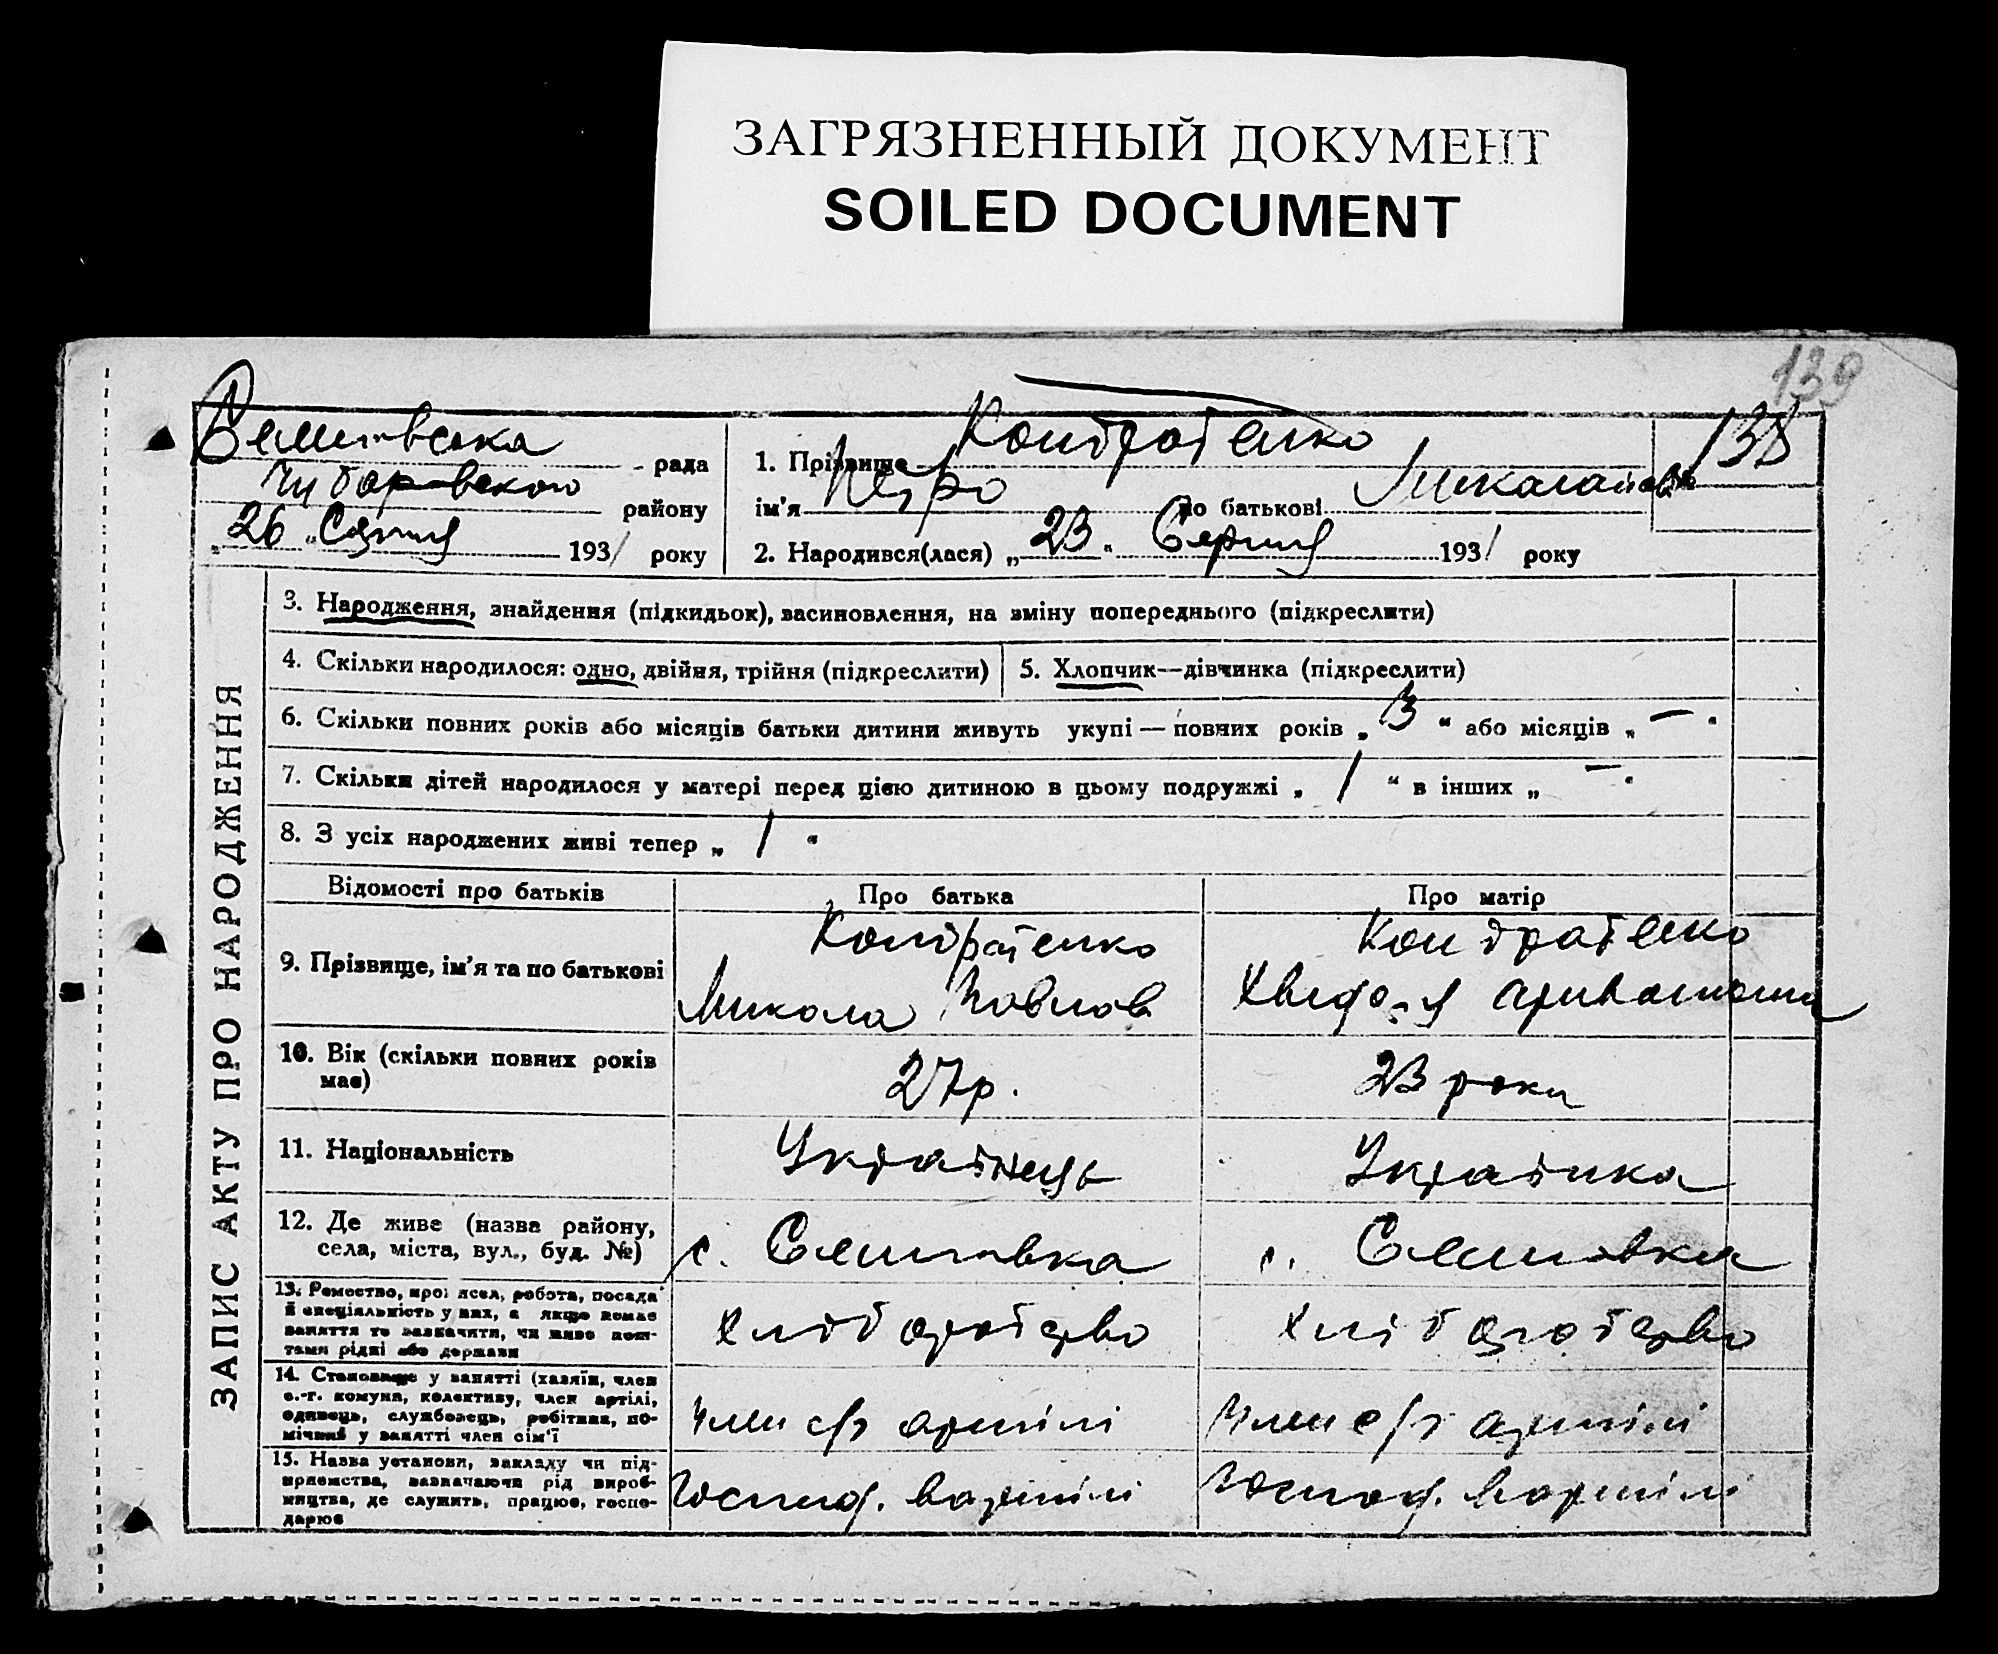 ЗАГРЯЗНЕННЫЙ ДОКУМЕНТ
SOILED DOCUMENT
139
138
Семенівська рада
Чубарівського району
„26 „ Серпня 1931 року
1. Прізвище Кондратенко
ім'я Петро по батькові Миколайов
2. Народився(лася) „23„ Серпня 1931 року
ЗАПИС АКТУ ПРО НАРОДЖЕННЯ
3. Народження, знайдення (підкидьок), засиновлення, на зміну попереднього (підкреслити)
4. Скільки народилося: одно, двійня, трійня (підкреслити)
5. Хлопчик—дівчинка (підкреслити)
6. Скільки повних років або місяців батьки дитини живуть укупі — повних років „ 3 “ або місяців „ — “
7. Скільки дітей народилося у матері перед цією дитиною в цьому подружжі „ 1 “ в інших „ — “
8. З усіх народжених живі тепер „ 1 “
Відомості про батьків Про батька Про матір
9. Прізвище, ім'я та по батькові
Кондратенко
Микола Павлов
Кондратенко
10. Вік (скільки повних років
має)
27 р.
23 роки
11. Національність Українець Українка
12. Де живе (назва району,
села, міста, вул., буд. №)
с. Семенівка
с. Семенівка
13. Ремество, професія, робота, посада
й спеціальність у них, а якщо немає
заняття то зазначити, чи живе кош-
тами рідні або держави
Хліборобство
Хліборобство
14. Становище у занятті (хазяїн, член
с.-г. комуни, колективу, член артілі,
одинець, службовець, робітник, по-
мічний у занятті член сім'ї
Член с/г артілі
Член с/г артілі
15. Назва установи, закладу чи під-
приємства, зазначаючи рід вироб-
ництва, де служить, працює, госпо-
дарює
Господ. в артілі
Господ. в артілі